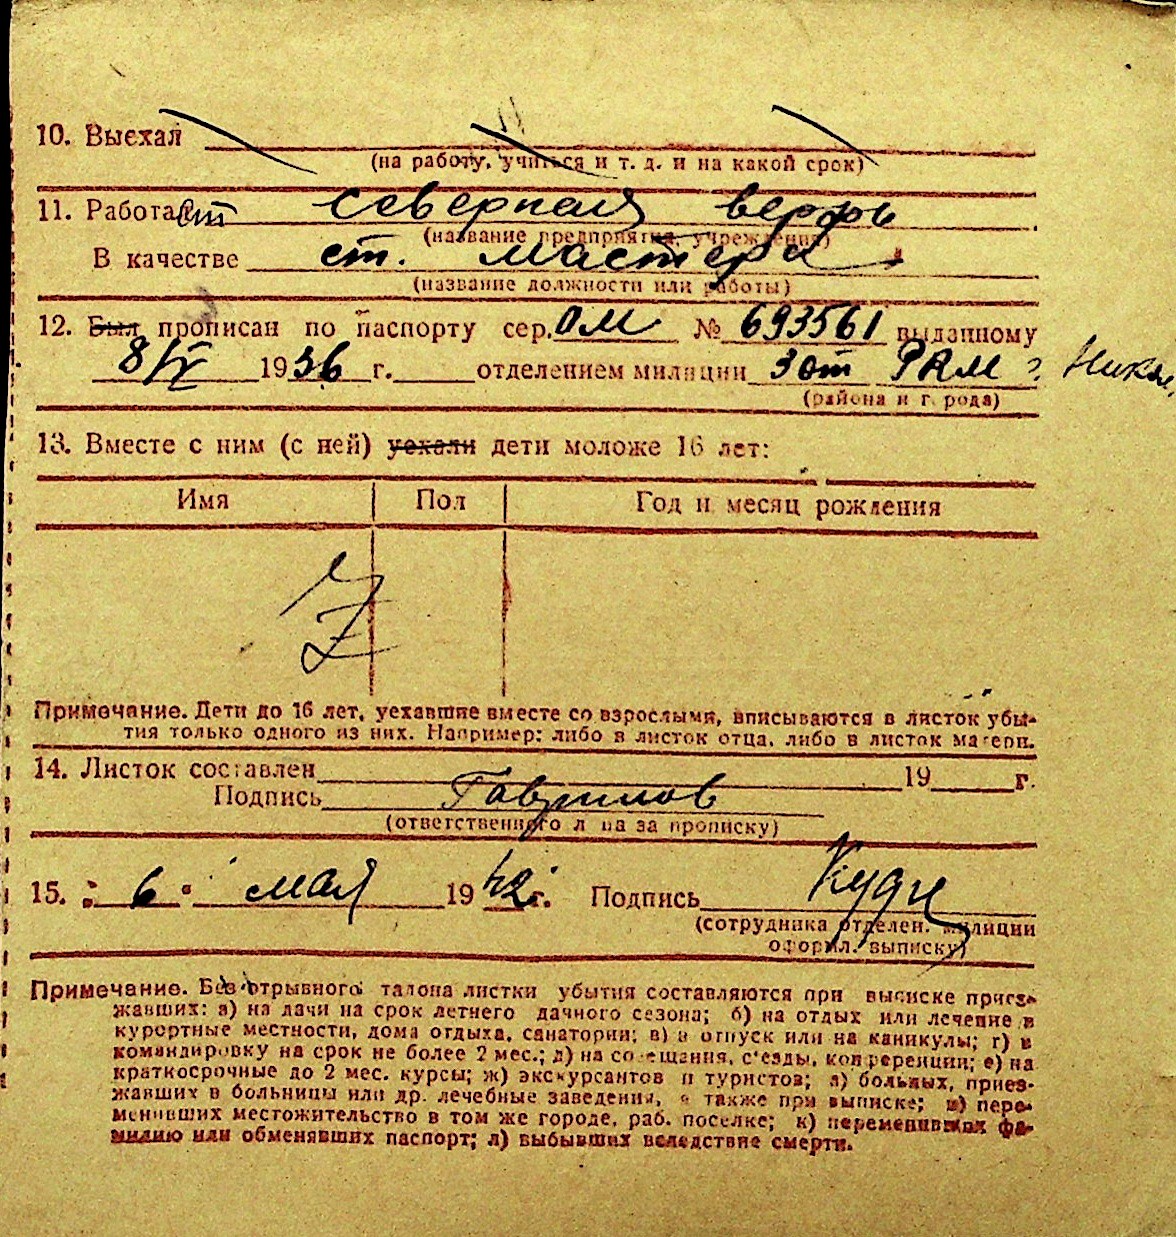 10. Выехал
(на работу, учиться и т. д. и на какой срок)
11. Работает северная верфь
(название предприятия, учреждения)
В качестве ст. мастера
(название должности или работы)
12. Был прописан по паспорту сер. ОМ № 693561 выданному
8/IX 1936 г. отделением милиции 3 от РКМ г. Никол.
(района и города)
13. Вместе с ним (с ней) уехали дети моложе 16 лет:
Имя Пол Год и месяц рождения
Примечание. Дети до 16 лет, уехавшие вместе со взрослыми, вписываются в листок убы-
тия только одного из них. Например: либо в листок отца, либо в листок матери.
14. Листок составлен 19 г.
Подпись Гаврилов
(ответственного лица за прописку)
15. " 6 " мая 1942 г. Подпись
(сотрудника отделен. милиции
оформл. выписку)
Примечание. Без отрывного талона листки убытия составляются при выписке приез-
жавших: а) на дачи на срок летнего дачного сезона; б) на отдых или лечение в
курортные местности, дома отдыха, санатории; в) в отпуск или на каникулы; г) в
командировку на срок не более 2 мес.; д) на совещания, с'езды, конференции; е) на
краткосрочные до 2 мес. курсы; ж) экскурсантов и туристов; з) больных, приез-
жавших в больницы или др. лечебные заведения, а также при выписке; и) пере-
менивших местожительство в том же городе, раб. поселке; к) переменивших фа-
милию или обменявших паспорт; л) выбывших вследствие смерти.